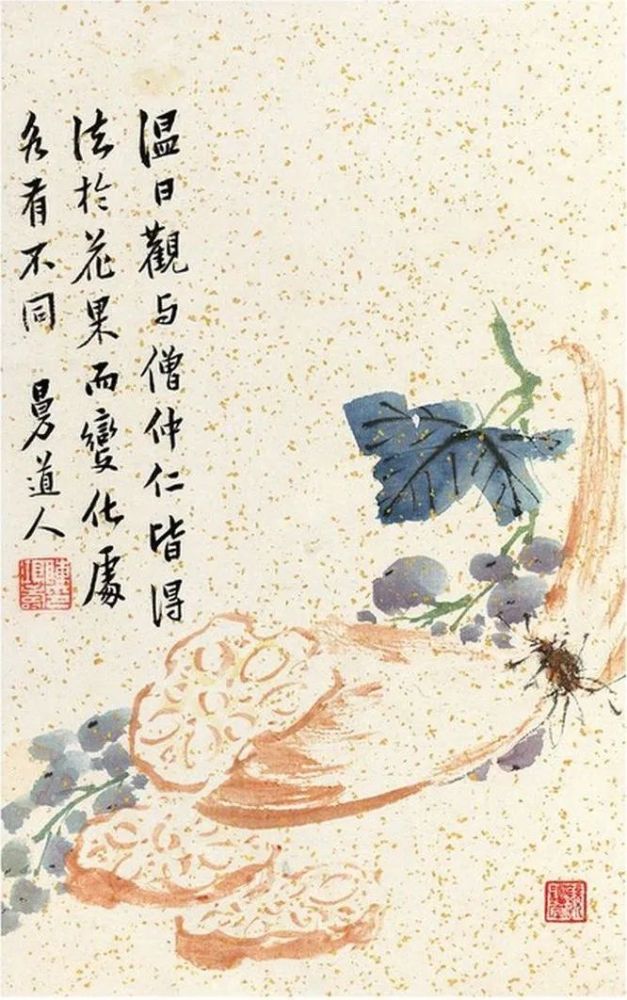 温日觀与僧仲仁皆得
法於花果而變化處
各有不同
曼道人